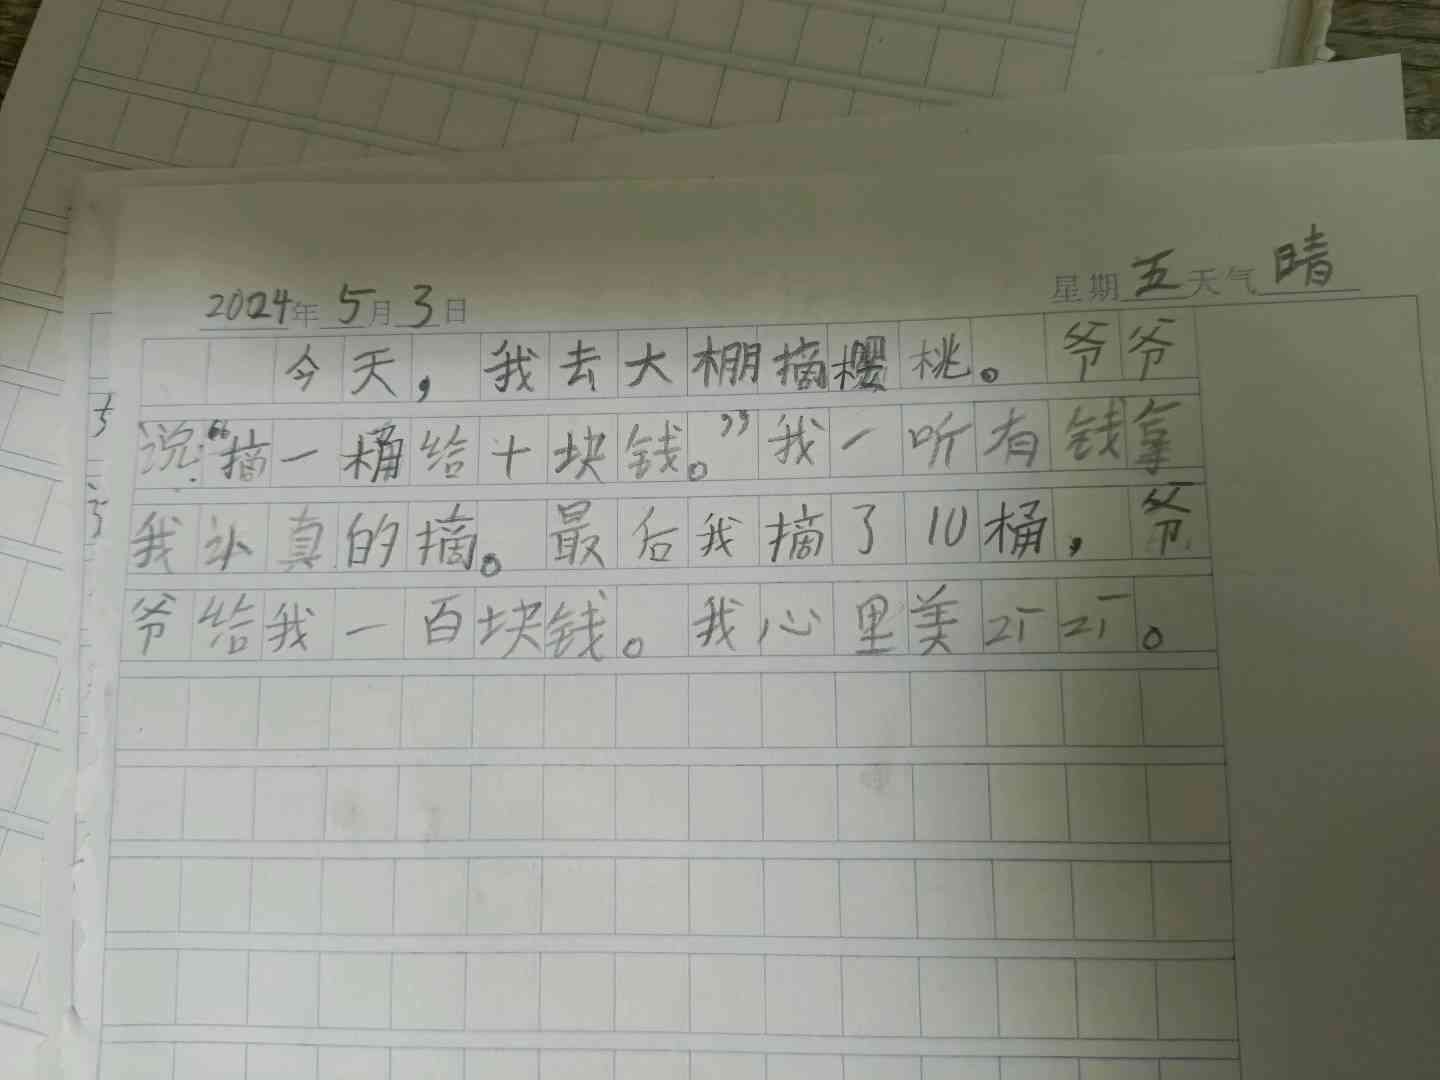 2024年5月3日 星期五天气晴
今天，我去大棚摘樱桃。爷爷
说:“摘一桶给十块钱。”我一听有钱拿
我认真的摘。最后我摘了10桶，爷
爷给我一百块钱。我心里美滋滋。